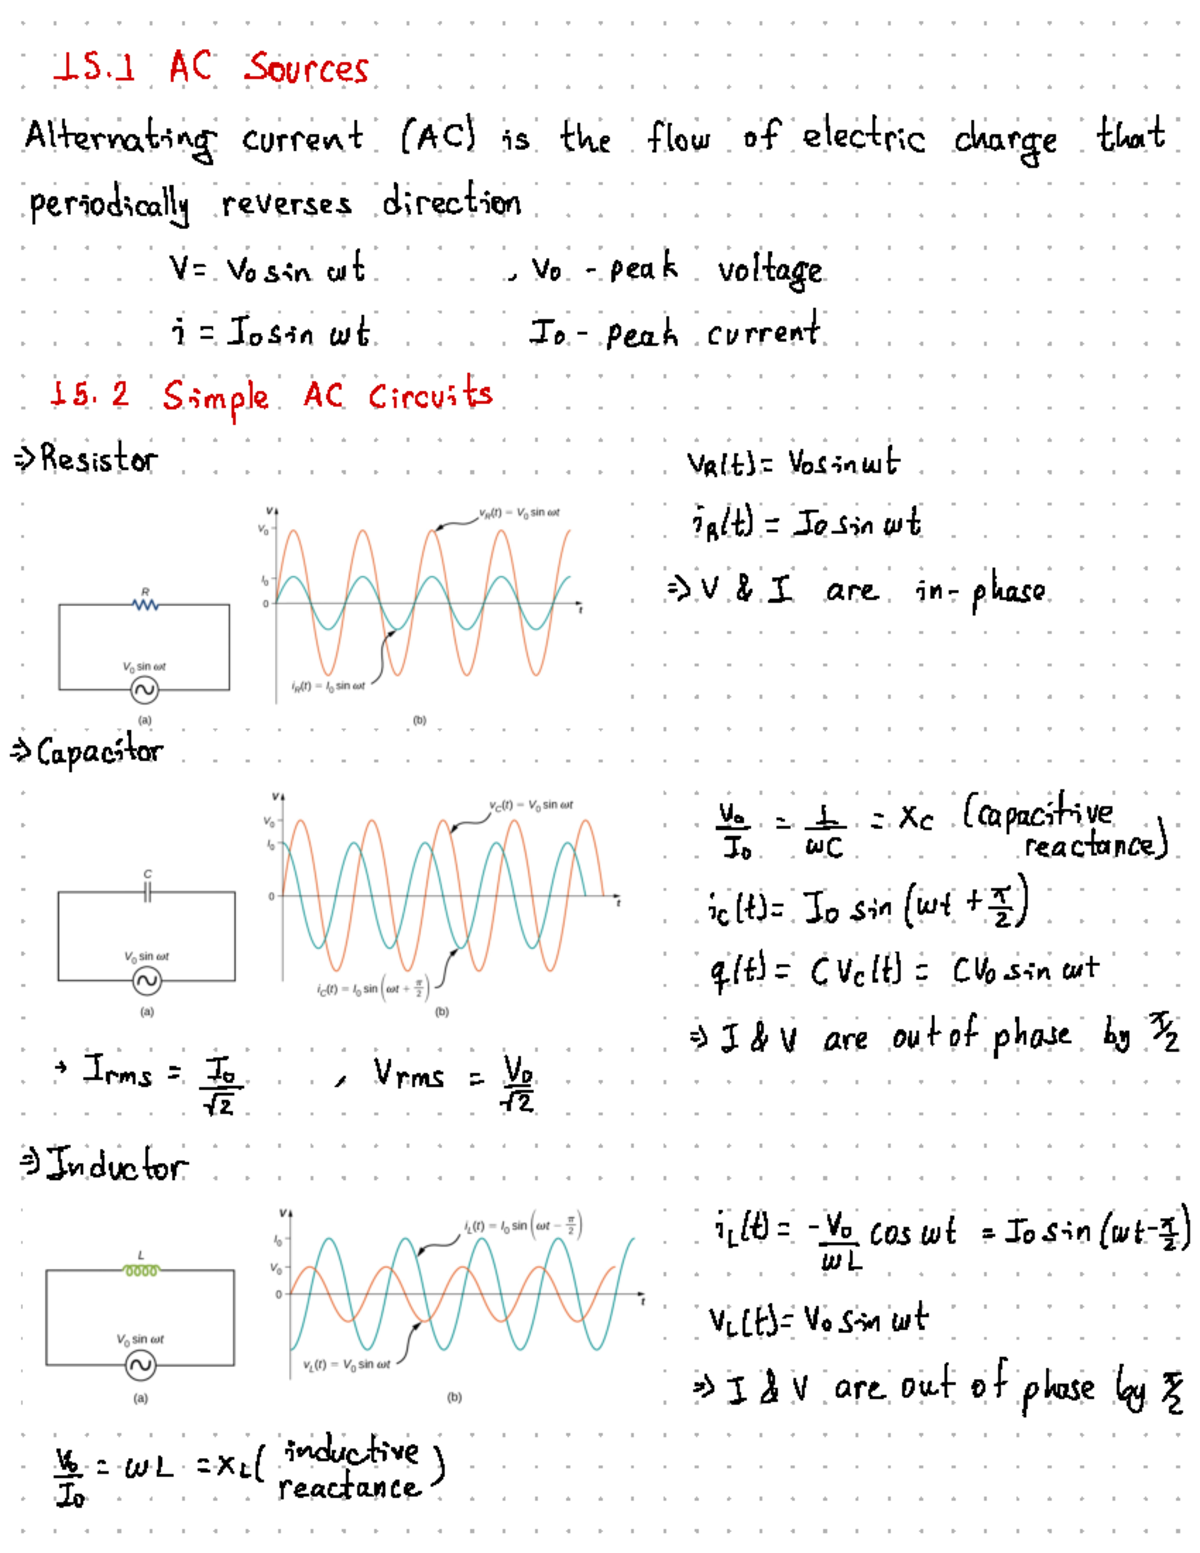 15.1 AC Sources
Alternating current (AC) is the flow of electric charge that
periodically reverses direction
V = V₀ sin ωt , V₀ - peak voltage
i = I₀ sin ωt I₀ - peak current
15.2 Simple AC Circuits
⇒ Resistor
V_R(t) = V₀ sin ωt
i_R(t) = I₀ sin ωt
⇒ V & I are in-phase
R
V₀ sin ωt
(a)
V
V₀
I₀
0
t
v_R(t) = V₀ sin ωt
i_R(t) = I₀ sin ωt
(b)
⇒ Capacitor
C
V₀ sin ωt
(a)
V
V₀
I₀
0
t
v_C(t) = V₀ sin ωt
i_C(t) = I₀ sin (ωt + π/2)
(b)
V₀/I₀ = 1/ωC = X_C (capacitive
reactance)
i_C(t) = I₀ sin (ωt + π/2)
q(t) = C V_C(t) = C V₀ sin ωt
⇒ I & V are out of phase by π/2
→ Irms = I₀/√2 , Vrms = V₀/√2
⇒ Inductor
L
V₀ sin ωt
(a)
V
I₀
V₀
0
t
i_L(t) = I₀ sin (ωt − π/2)
v_L(t) = V₀ sin ωt
(b)
i_L(t) = -V₀/ωL cos ωt = I₀ sin (ωt - π/2)
V_L(t) = V₀ sin ωt
⇒ I & V are out of phase by π/2
V₀/I₀ = ωL = X_L ( inductive
reactance )